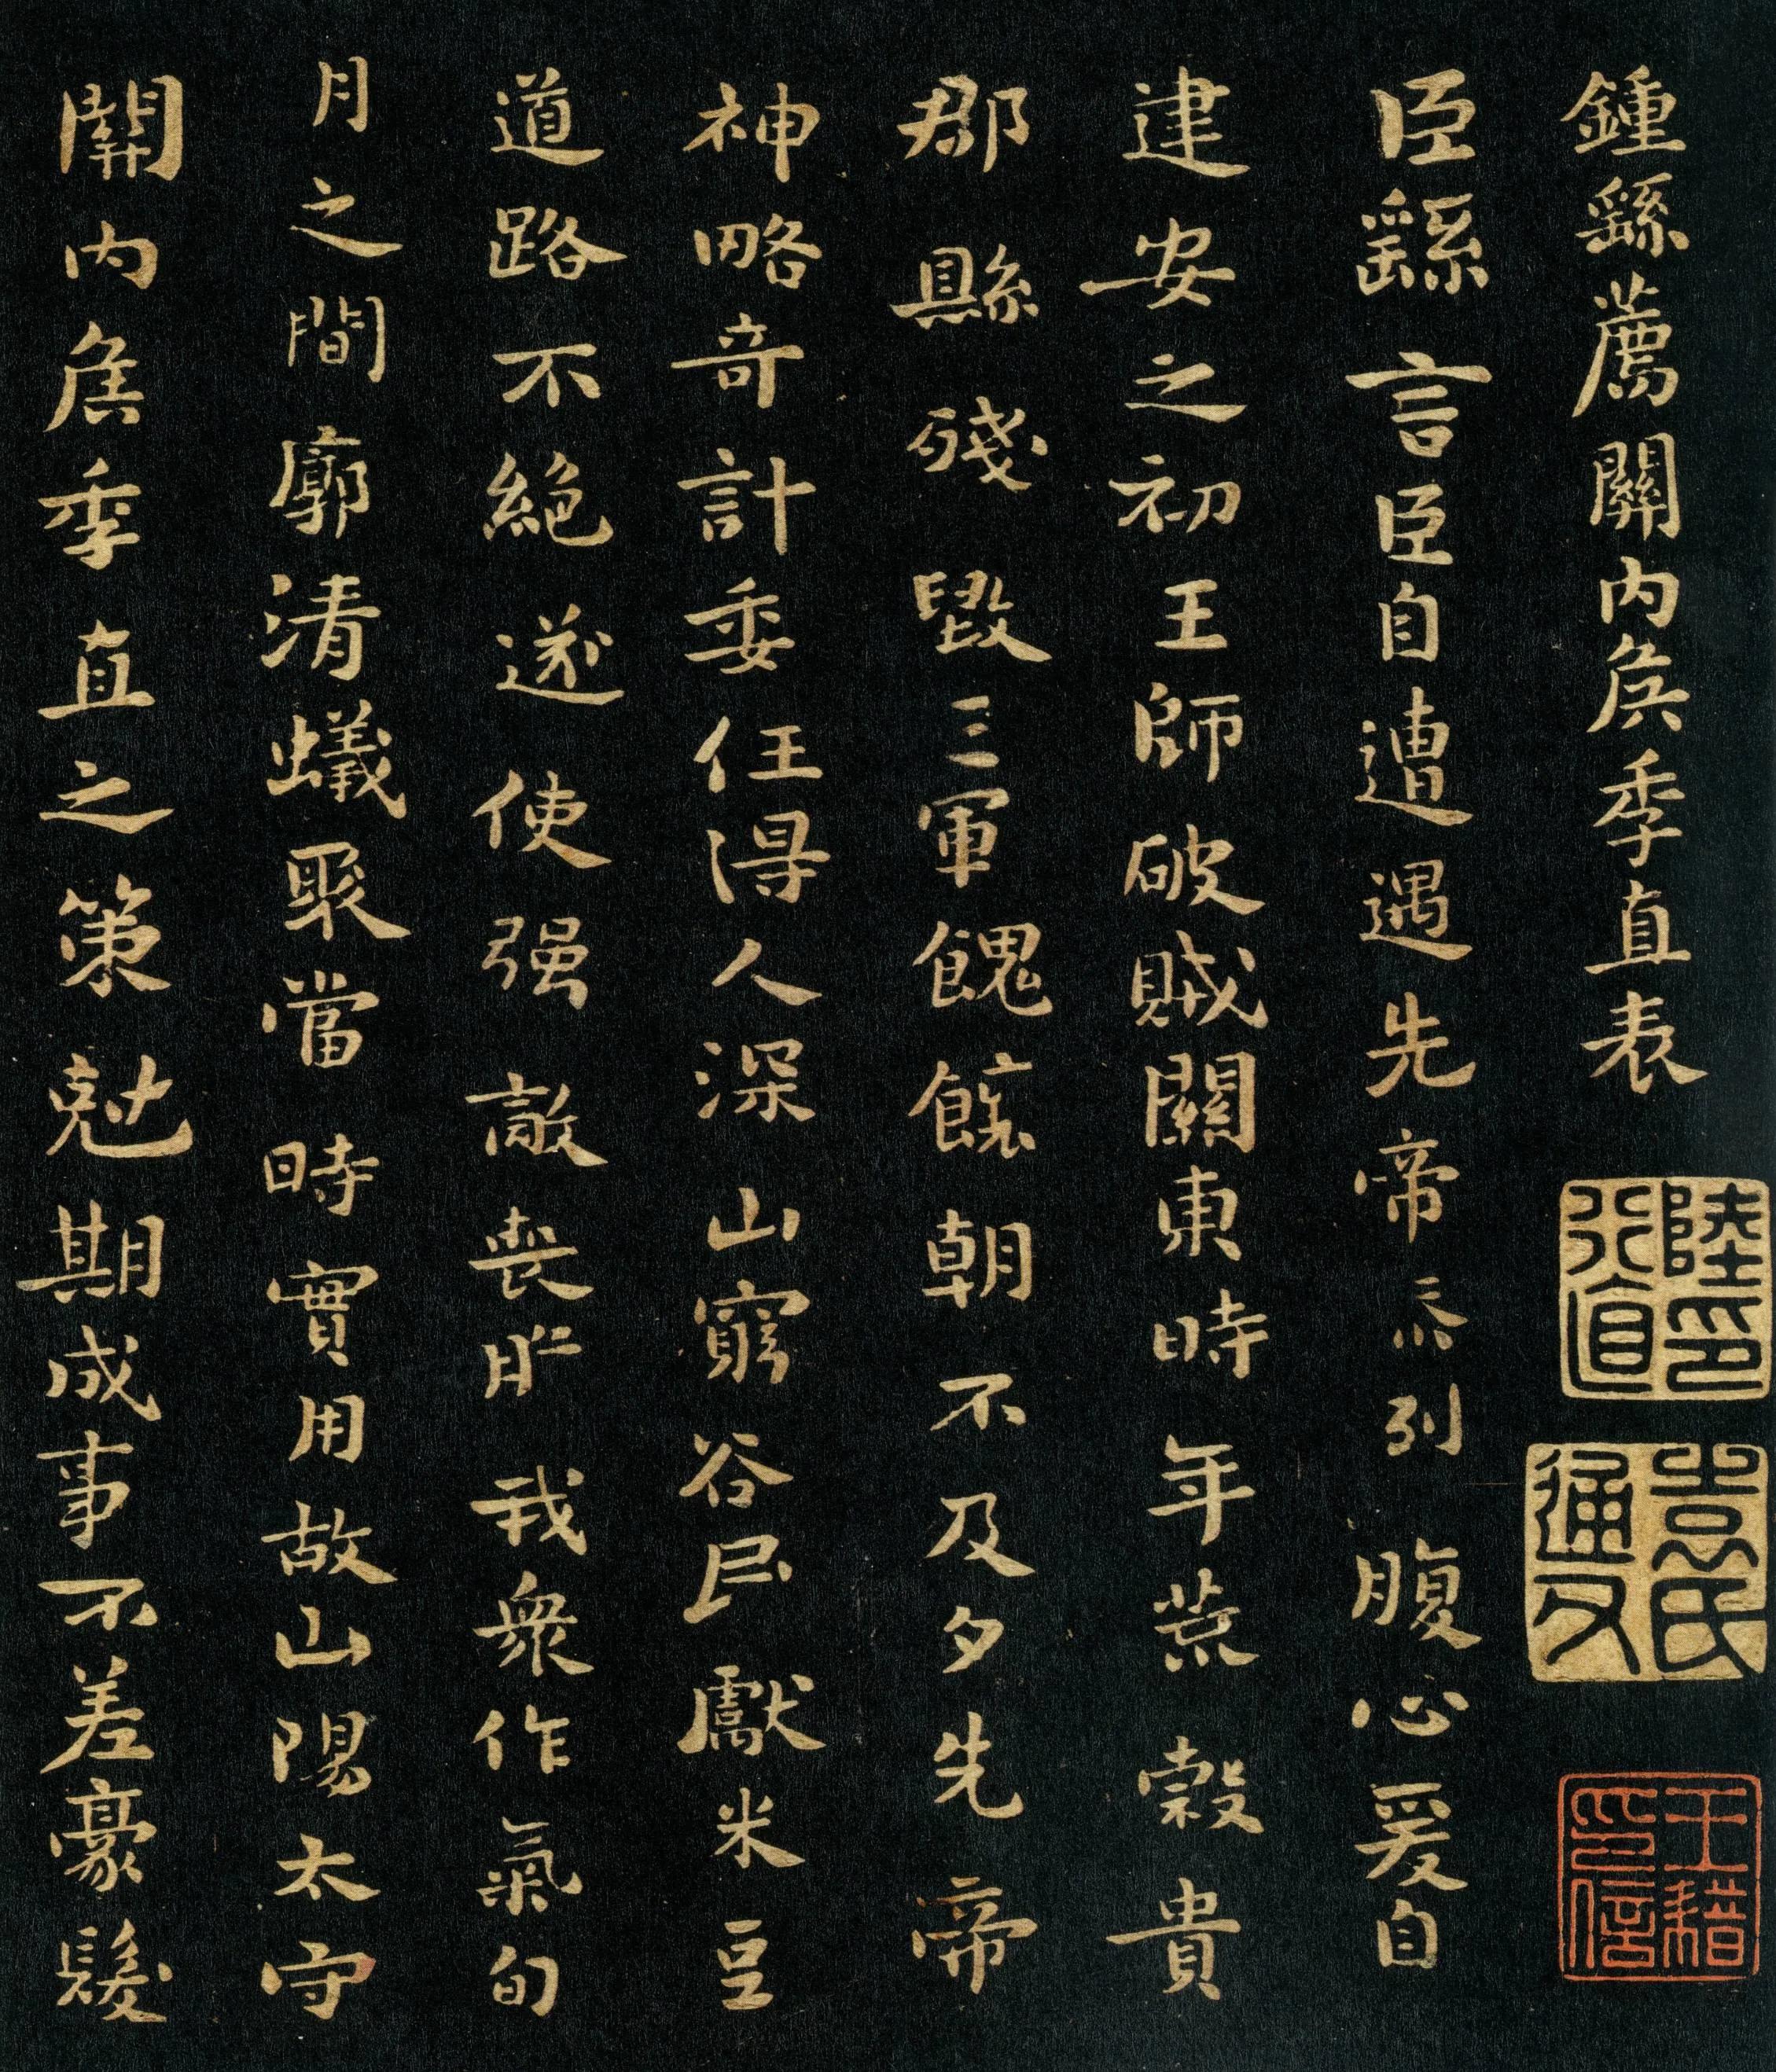 鍾繇薦關內侯季直表
臣繇言臣自遭遇先帝忝列腹心爰自
建安之初王師破賊關東時年荒穀貴
郡縣殘毀三軍餽饟朝不及夕先帝
神略奇計委任得人深山窮谷民獻米豆
道路不絕遂使强敵喪膽我衆作氣旬
月之間廓清蟻聚當時實用故山陽太守
關內侯季直之策剋期成事不差豪髮
陸行直印
袁氏通父
王藉印信